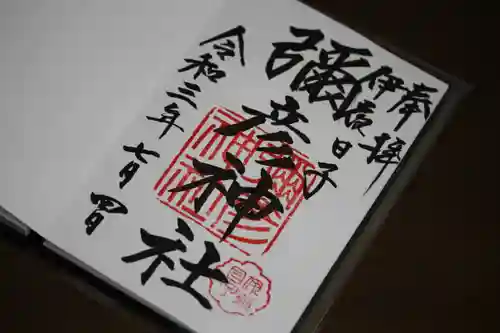 奉拝
伊夜日子
彌彦神社
令和三年七月四日